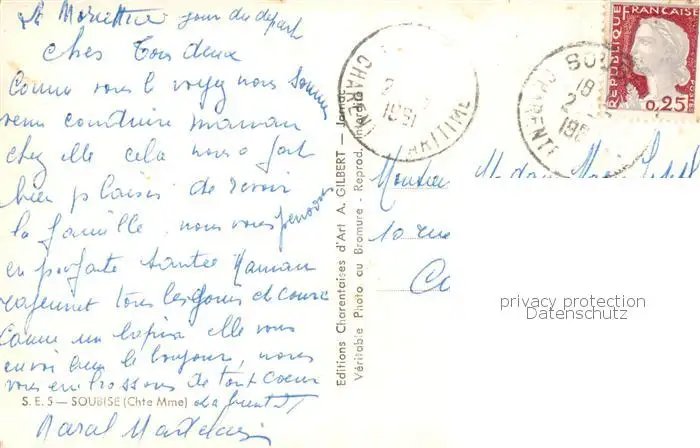 jour du départ
chez tous deux
Comme vous le voyez nous sommes
venu conduire maman
chez elle cela nous a fait
bien plaisir de revoir
la famille, nous vous pensons
en parfaite santée Maman
rajeunet tous les jours et coure
Comme un lapin elle vous
envoi bien le bonjour, nous
vous embrassons de tout coeur
S. E. S — SOUBISE (Chte Mme)
Editions Charentaises d'Art A. GILBERT —
Véritable Photo au Bromure - Reprod. Interdite
CHARENTE MARITIME
2
1961
SOUBISE
18
2
196
CHARENTE
REPUBLIQUE FRANÇAISE
POSTES
0,25F
Monsieur Madame
10 rue
privacy protection
Datenschutz